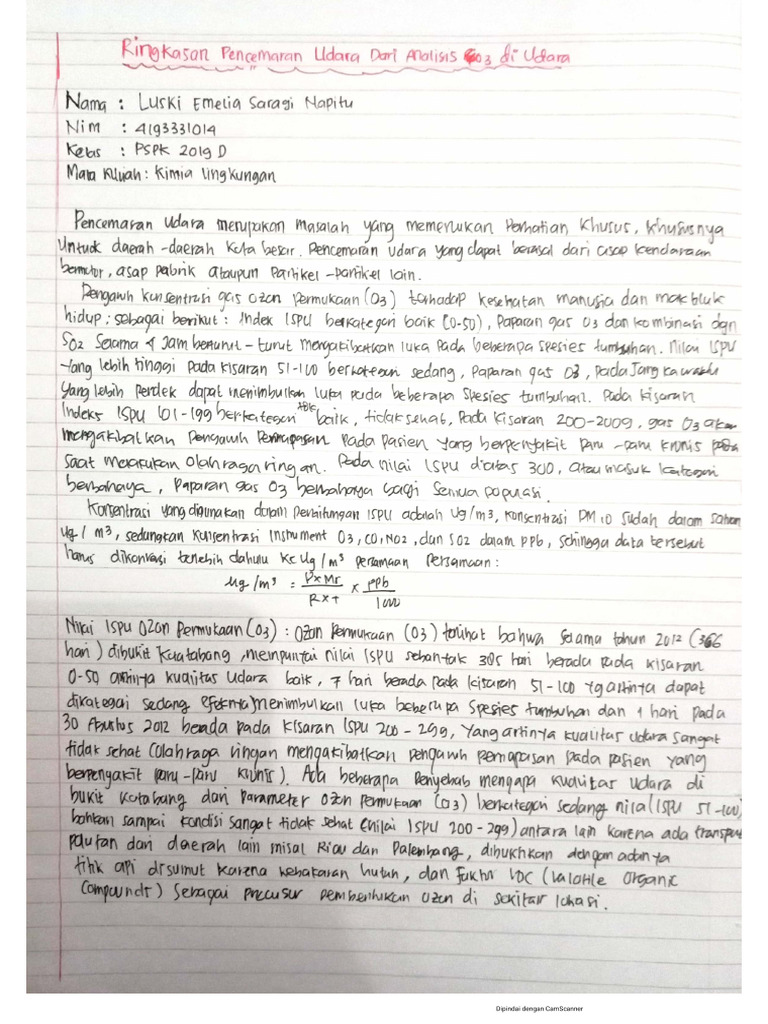 Ringkasan Pencemaran Udara Dari Analisis O3 di Udara
Nama : Luski Emelia Saragi Napitu
Nim : 4193331014
Kelas : PSPK 2019 D
Mata Kuliah : Kimia Lingkungan
Pencemaran Udara merupakan masalah yang memerlukan Perhatian Khusus, Khususnya
Untuk daerah-daerah Kota besar. Pencemaran udara yang dapat berasal dari asap kendaraan
bermotor, asap pabrik ataupun Partikel-partikel lain.
Pengaruh konsentrasi gas Ozon permukaan (O3) terhadap kesehatan manusia dan makhluk
hidup; sebagai berikut : Index ISPU berkategori baik (0-50), Paparan gas O3 dan kombinasi dgn
SO2 Selama 4 Jam berturut-turut mengakibatkan luka pada beberapa spesies tumbuhan. Nilai ISPU
yang lebih tinggi pada kisaran 51-100 berkategori sedang, Paparan gas O3, pada Jangka waktu
yang lebih pendek dapat menimbulkan luka pada beberapa Spesies tumbuhan. Pada kisaran
Indeks ISPU 101-199 berkategori tdk baik, tidak sehat, Pada Kisaran 200-2009, gas O3 akan
mengakibatkan Pengaruh Pernapasan Pada pasien yang berpenyakit paru-paru kronis pada
saat melakukan Olahraga ringan. Pada nilai ISPU diatas 300, atau masuk kategori
berbahaya, Paparan gas O3 berbahaya bagi semua populasi.
Konsentrasi yang digunakan dalam Perhitungan ISPU adalah Ug/m3, Konsentrasi PM10 Sudah dalam satuan
Ug/m3, sedangkan Konsentrasi Instrument O3, CO, NO2, dan SO2 dalam PPb, Sehingga data tersebut
harus dikonversi terlebih dahulu Ke Ug/m3 persamaan Persamaan :
Mg/m3 = PxMr / Rx+ x ppb / 1000
Nilai ISPU Ozon Permukaan (O3) : Ozon Permukaan (O3) terlihat bahwa Selama tahun 2012 (366
hari) dibukit Kuatabang, mempunyai nilai ISPU sebanyak 305 hari berada pada kisaran
0-50 artinya kualitas Udara baik, 7 hari berada pada kisaran 51-100 yg artinya dapat
dikategori Sedang (efeknya) menimbulkan luka beberapa Spesies tumbuhan dan 1 hari pada
30 Agustus 2012 berada pada Kisaran ISPU 200-299, Yang artinya kualitas udara sangat
tidak sehat (olahraga ringan mengakibatkan pengaruh pernapasan pada pasien yang
berpenyakit paru-paru kronis). Ada beberapa Penyebab mengapa kualitas udara di
bukit Kotabang dari Parameter Ozon Permukaan (O3) berkategori sedang nilai (ISPU 51-100)
bahkan sampai kondisi sangat tidak sehat (nilai ISPU 200-299) antara lain karena ada transport
polutan dari daerah lain misal Riau dan Palembang, dibuktikan dengan adanya
titik api disumut karena kebakaran hutan, dan faktor VOC (Valotile Organic
Compounds) Sebagai precusur pembentukan ozon di sekitar lokasi.
Dipindai dengan CamScanner